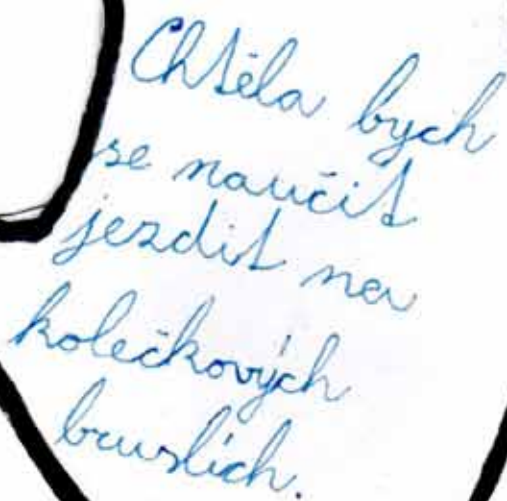 Chtěla bych
se naučit
jezdit na
kolečkových
bruslích.